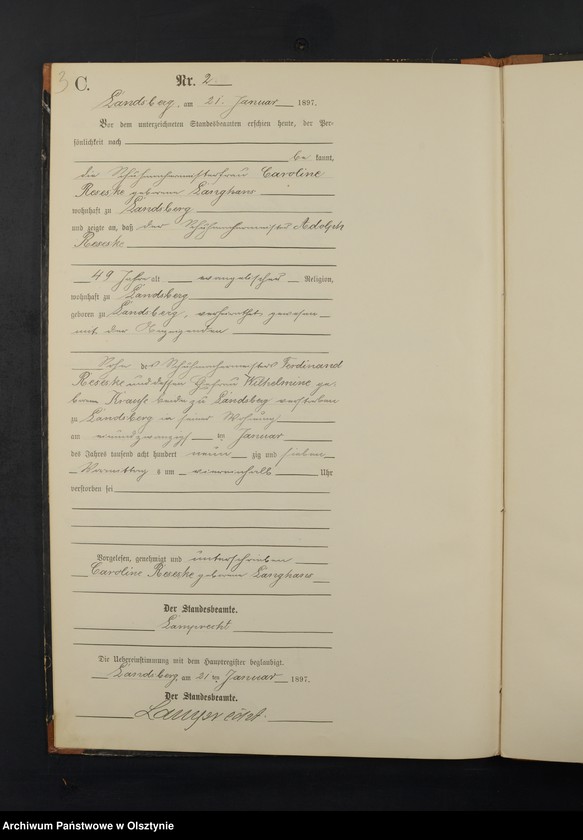 3 C. Nr. 2
Landsberg, am 21. Januar 1897.
Vor dem unterzeichneten Standesbeamten erschien heute, der Per-
sönlichkeit nach
be kannt,
die Schuhmachermeisterfrau Caroline
Reseske geborene Langhans
wohnhaft zu Landsberg
und zeigte an, daß der Schuhmachermeister Adolph
Reseske
49 Jahre alt evangelischer Religion,
wohnhaft zu Landsberg
geboren zu Landsberg, verheirathet gewesen
mit der
Sohn des Schuhmachermeisters Ferdinand
Reseske und dessen Ehefrau Wilhelmine ge-
borene Krause beide zu Landsberg verstorben
zu Landsberg in seiner Wohnung
am einundzwanzigsten ten Januar
des Jahres tausend acht hundert neun zig und sieben
Vormittags um Uhr
verstorben sei
Vorgelesen, genehmigt und unterschrieben
Caroline Reseske geborene Langhans
Der Standesbeamte.
Lamprecht
Die Uebereinstimmung mit dem Hauptregister beglaubigt.
Landsberg, am 21 ten Januar 1897.
Der Standesbeamte.
Lamprecht.
Archiwum Państwowe w Olsztynie